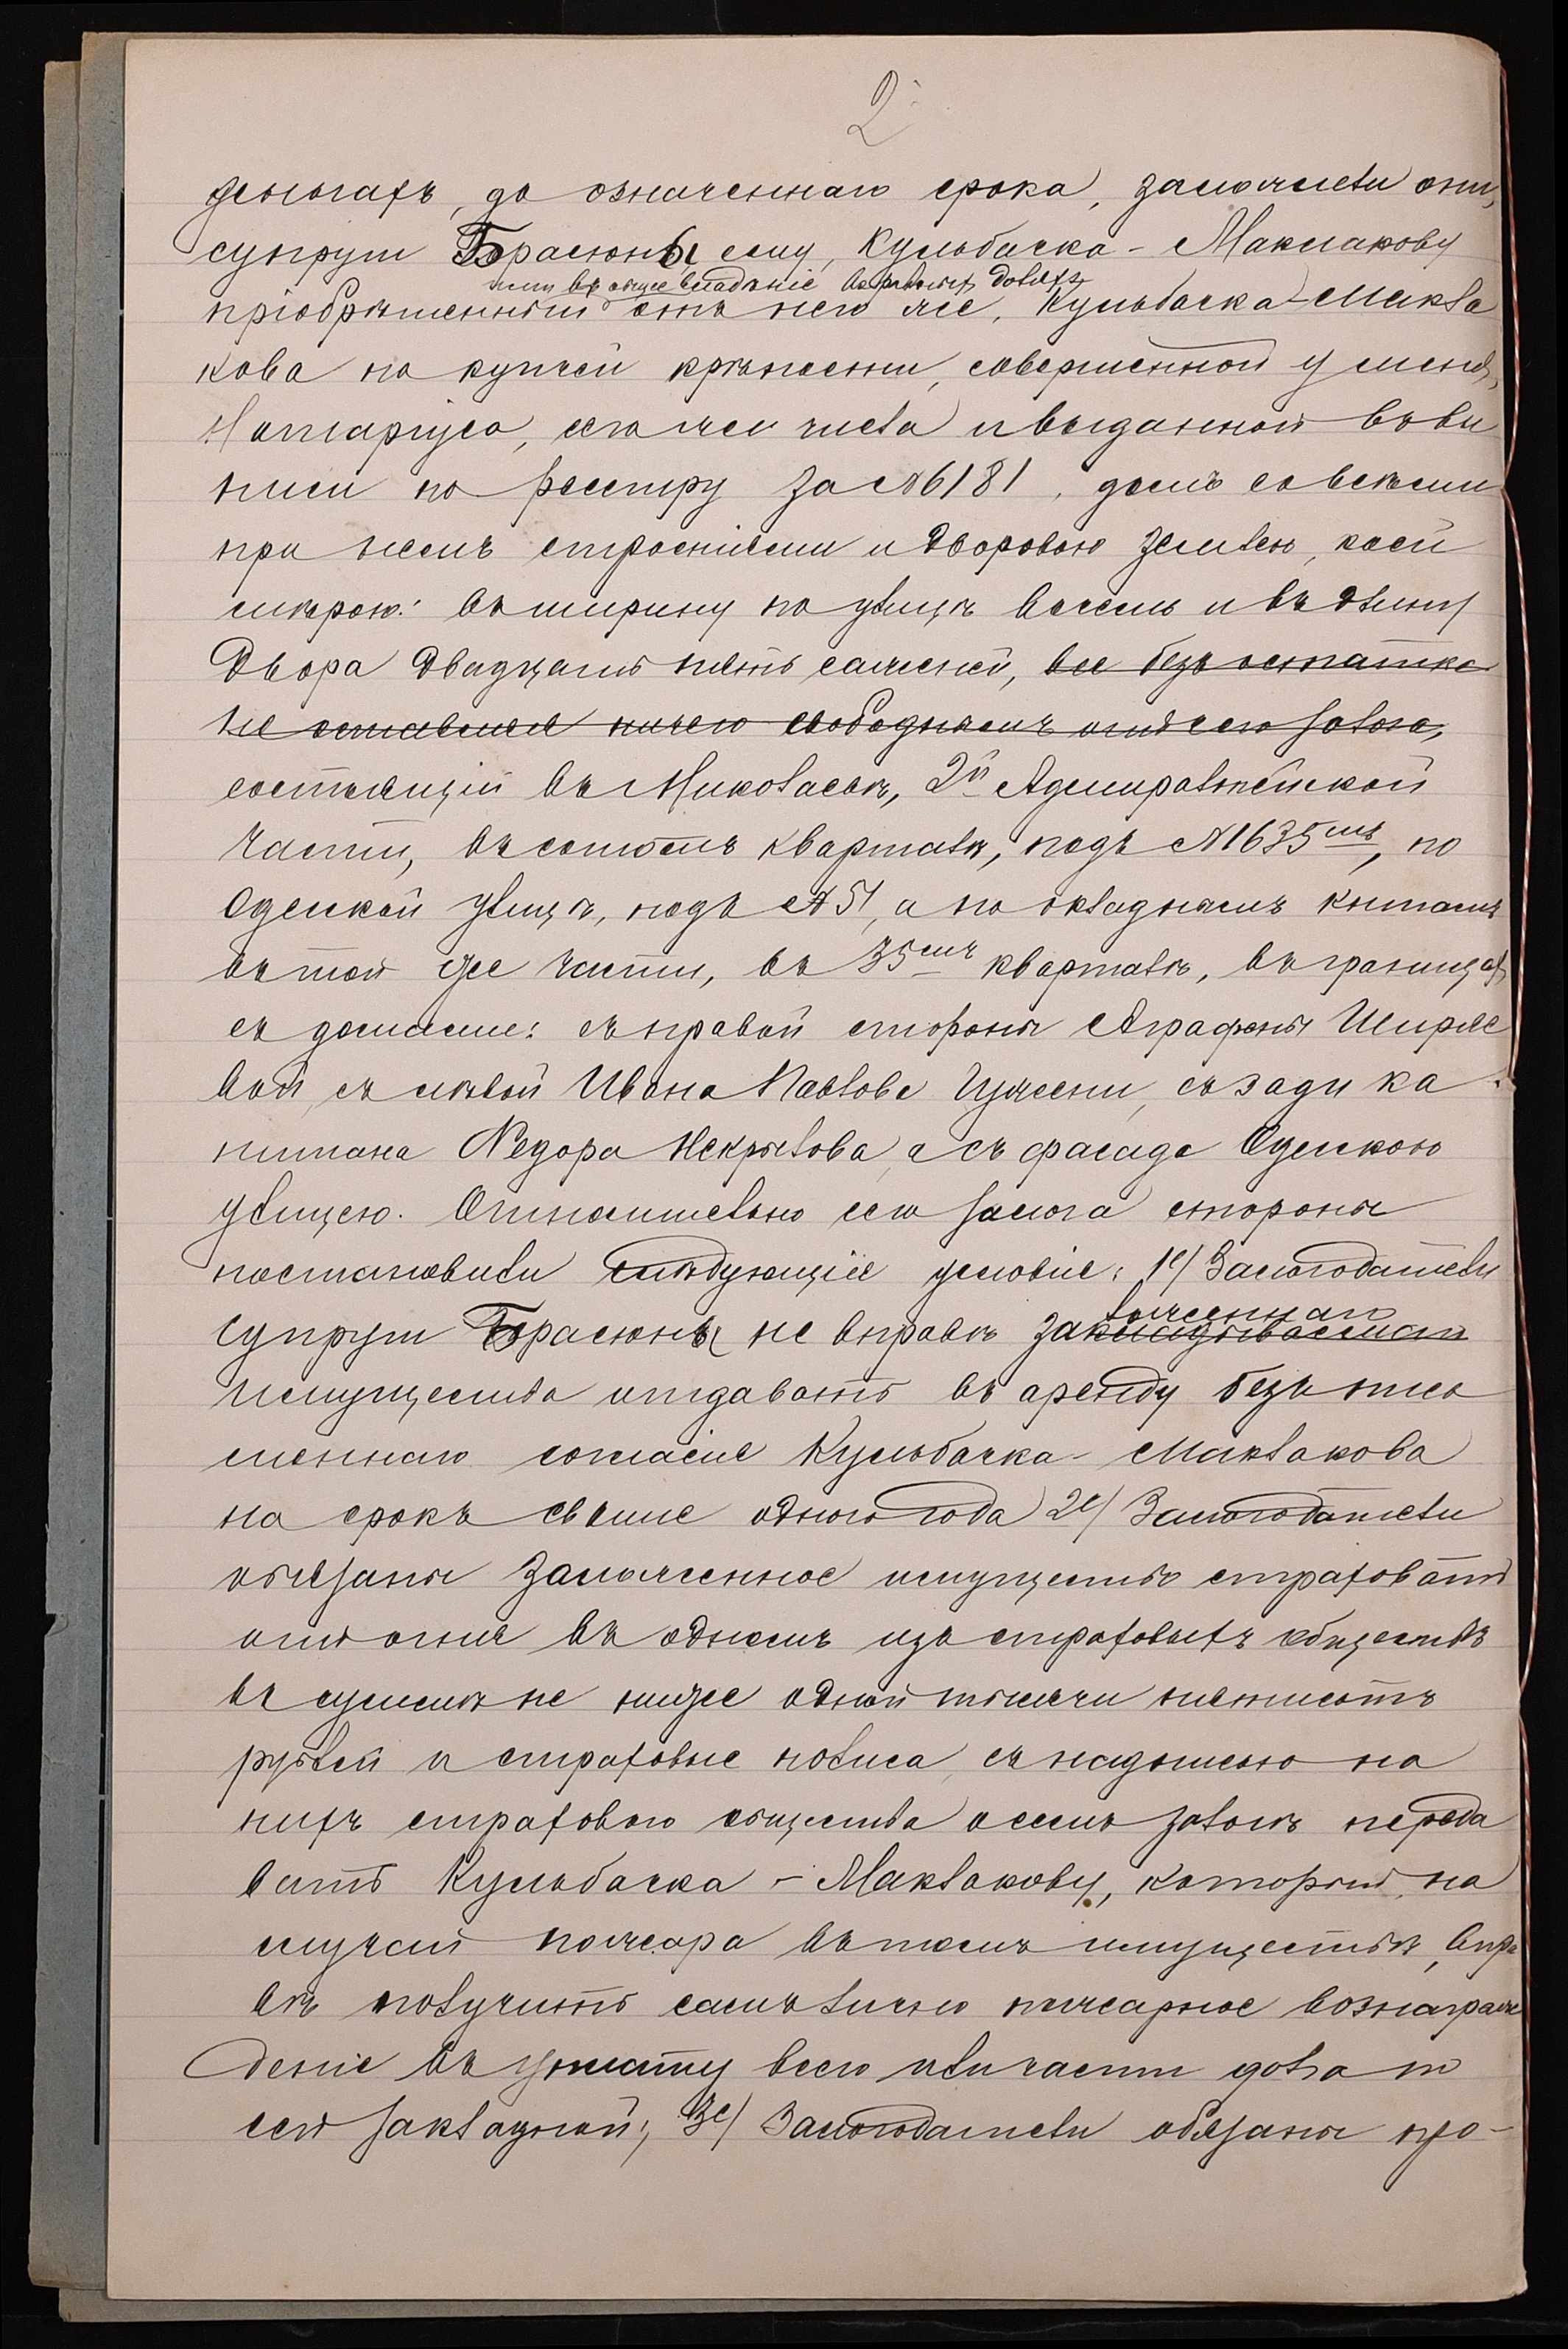 2
деньгахъ, до означеннаго срока, заложили они,
супруги Борасюны, ему, Кульбачка-Маклакову
ими въ общее владѣніе въ равныхъ доляхъ
пріобрѣтенный отъ него же, Кульбачка-Макла
кова по купчей крѣпости, совершенной у меня,
Нотаріуса, сего же числа и выданной въ вы
писи по реестру за №6181, домъ со всѣми
при немъ строеніями и дворовою землею, коей
мѣрою: въ ширину по улицѣ восемь и въ длину
двора двадцать пять саженей, все безъ остатка
не оставляя ничего свободнымъ отъ сего залога,
состоящій въ Николаевѣ, 2й Адмиралтейской
части, въ сотомъ кварталѣ, подъ №1635мъ, по
Одесской улицѣ, подъ №51, а по окладнымъ книгамъ
въ той же части, въ 35мъ кварталѣ, въ границахъ
съ домами: съ правой стороны Аграфены Ширяе
вой, съ лѣвой Ивана Павлова, съ зади ка
питана Ѳедора Некрылова, а съ фасада Одесскою
улицею. Относительно сего залога стороны
постановили слѣдующія условія: 1е/ Залогодатели
лоченнаго
супруги Борасюны не вправѣ закладываемаго
имущества отдавать въ аренду безъ пись
меннаго согласія Кульбачка-Маклакова
на срокъ свыше одного года 2е/ Залогодатели
обязаны заложенное имущество страховать
отъ огня въ одномъ изъ страховыхъ обществъ
въ суммѣ не ниже одной тысячи пятисотъ
рублей и страховые полиса, съ надписью на
нихъ страхового общества о семъ залогѣ переда
вать Кульбачка-Маклакову, который, на
случай пожара въ томъ имуществѣ, впра
вѣ получить самъ лично пожарное вознаграж
деніе въ уплату всего или части долга по
сей закладной; 3е/ Залогодатели обязаны про-